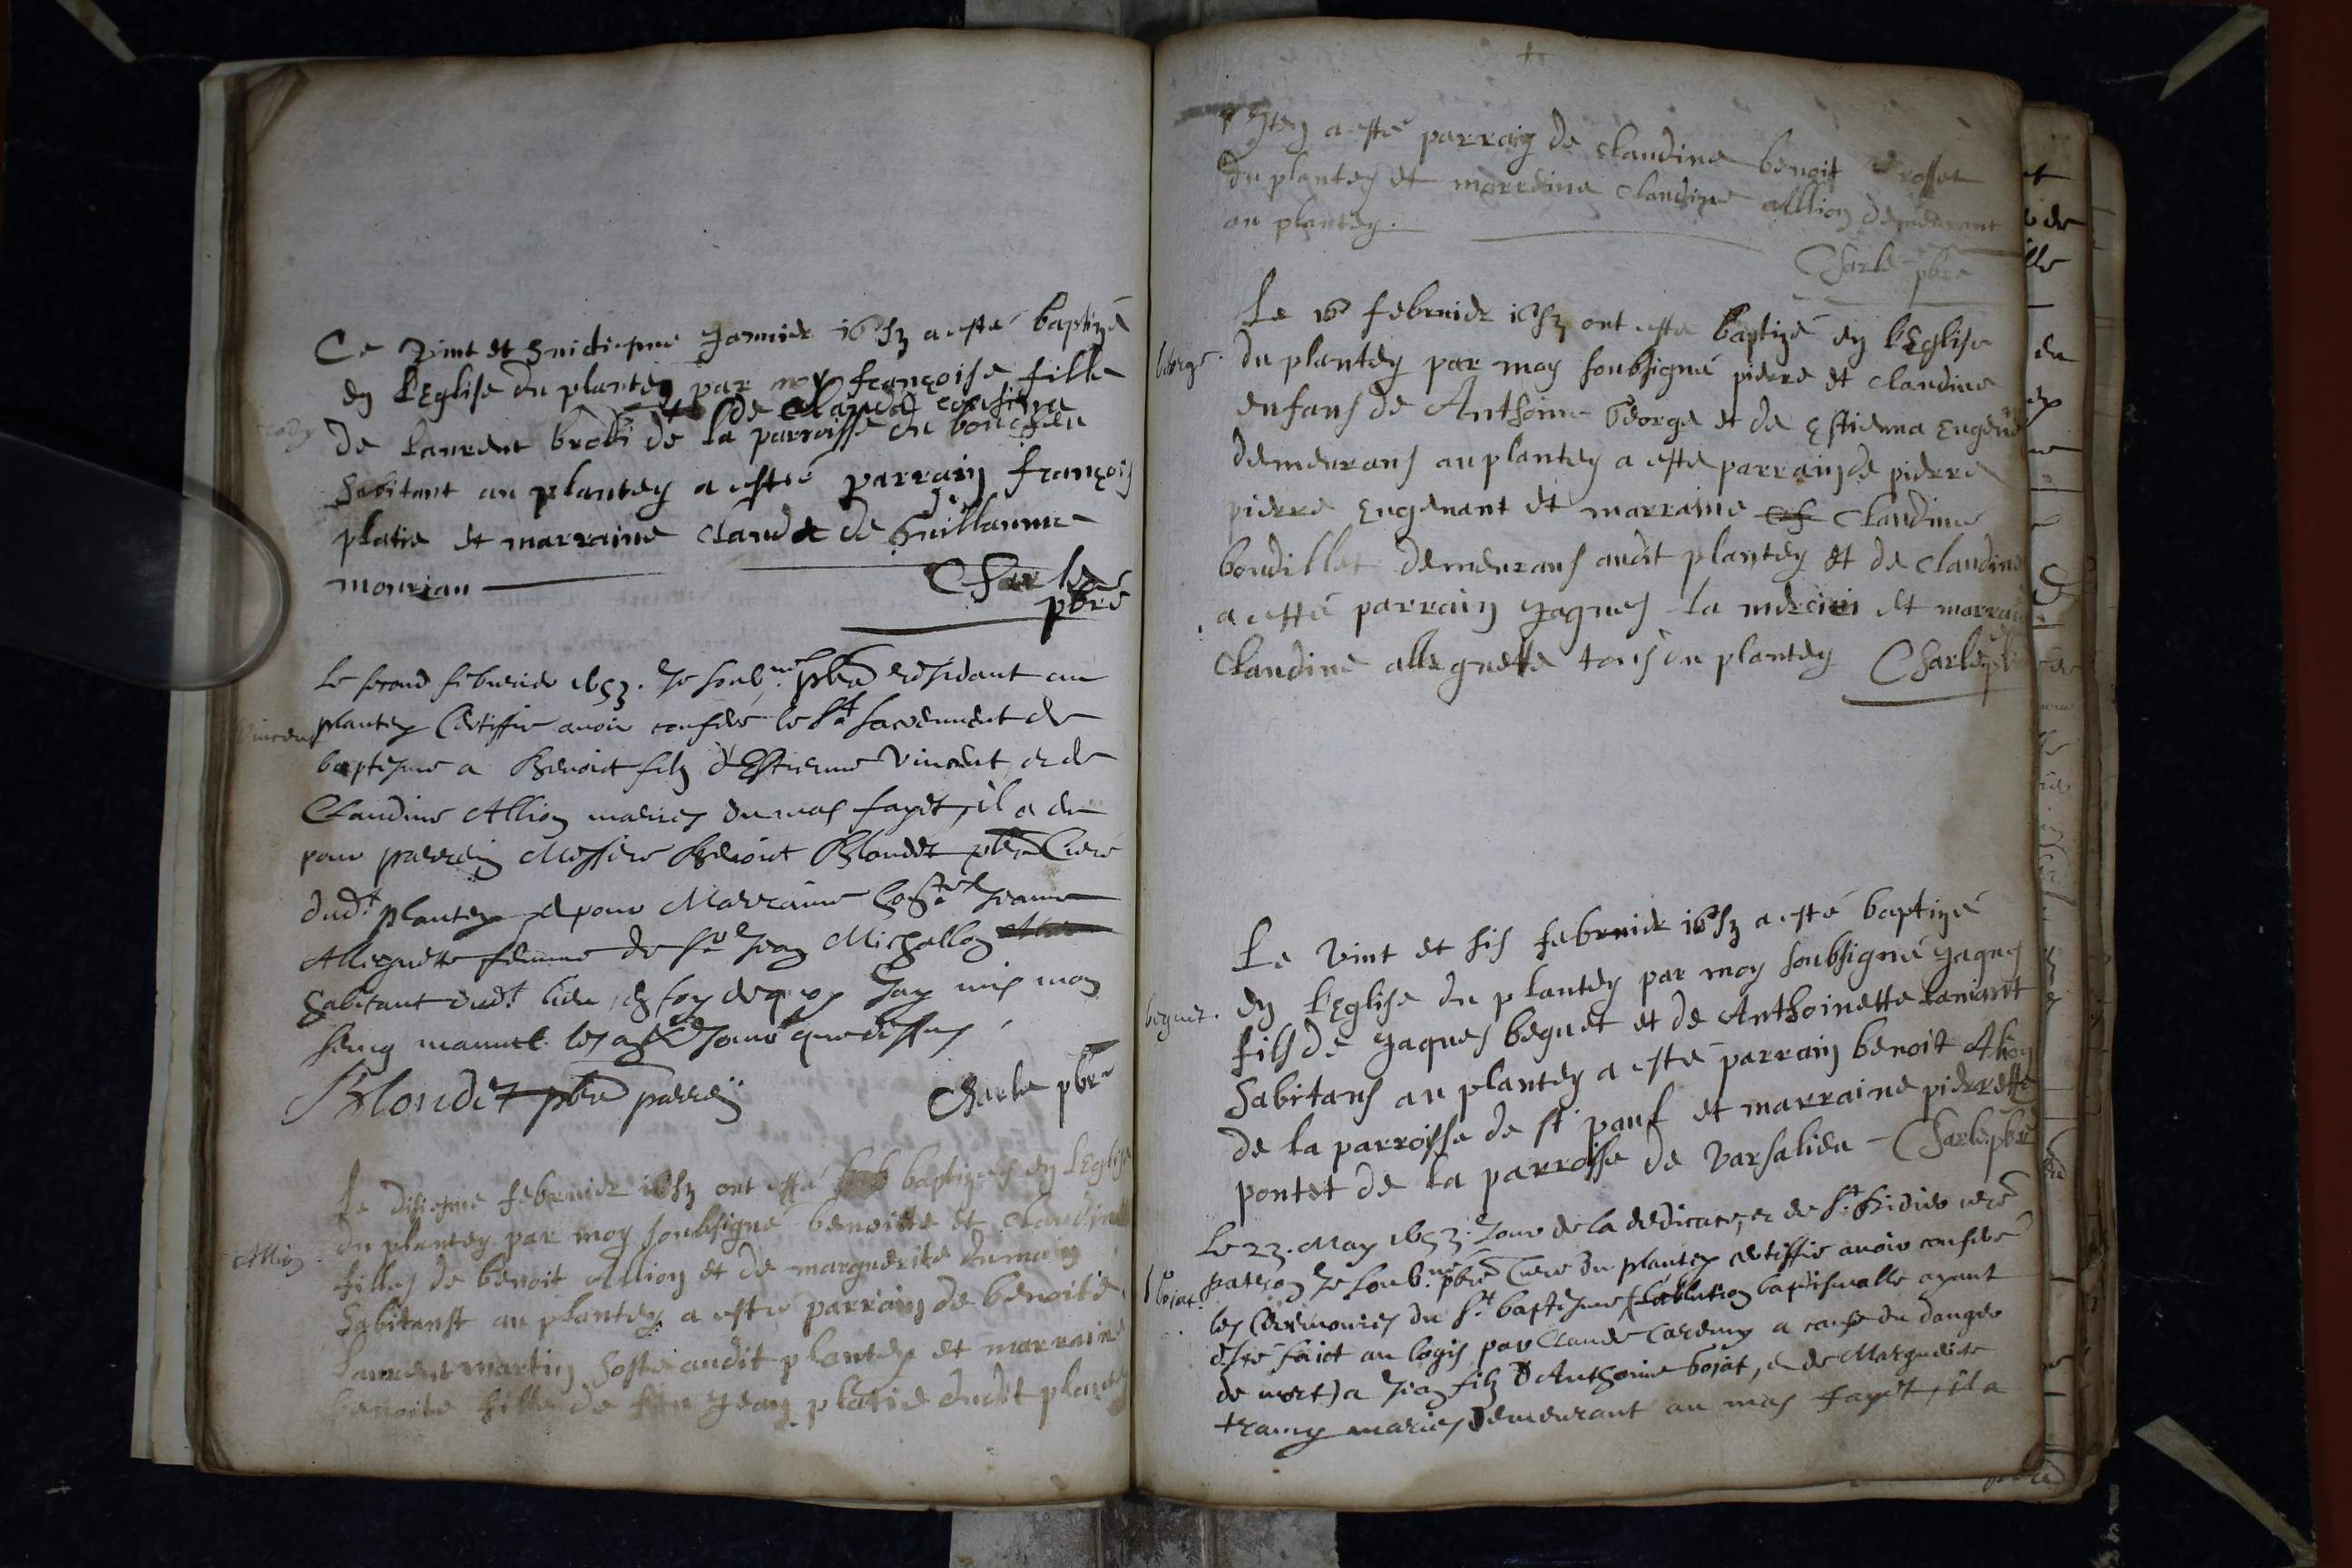 Ce vint et huictiesme Janvier 1653 a esté baptizé
en l'Eglise du plantey par moy françoise fille
de Clauda
de Laurent brotti de la parroisse du bouchou
habitant au plantey a esté parrain françois
platie et marraine Clauda de Guillaume
mourian
Charle
pbre
Le second febvrier 1653. Je soub.né pbre residant au
plantey Certiffie avoir conferé le St Sacrement de
baptesme a Benoict filz d'Estienne Vincent et de
Claudine Allion mariés du mas fayet, il a eu
pour parrein Messire Benoict Blondet pbre Curé
dud.t plantey et pour Marraine hon.te Jeanne
Alleguette femme de Sr Jean Michallon
habitant dud.t lieu, en foy dequoy Jay mis mon
seing manuel les an et Jour que dessus
Blondet pbre parrein
Charle pbre
Allion
Le disiesme febvrier 1653 ont esté baptizés en l'Eglise
du plantey par moy soubsigné benoitte et Claudine
filles de benoit Allion et de marguerite dumain
habitanst au plantey a esté parrain de benoite
Laurent martin hoste audit plantey et marraine
benoite fille de feu Jean platie dudit plantey
+
a esté parrain de claudine benoit rosset
du plantey et marreine claudine allion demeurant
au plantey.
Charle pbre
George.
Le 16 febvrier 1653 ont esté baptizé en l'Eglise
du plantey par moy soubsigné pierre et claudine
enfans de Anthoine George et de Estienna Eugen
demeurans au plantey a esté parrain de pierre
pierre Eugenant et marraine Claudine
boudillet demeurans audit plantey et de claudine
a esté parrain Jaques la mercier et marrai
Claudine alleguette tous du plantey Charle pb
beguet.
Le vint et sis febvrier 1653 a esté baptizé
en l'Eglise du plantey par moy soubsigné Jaques
fils de Jaques beguet et de Anthoinette Laniant
habitans au plantey a esté parrain benoit Alion
de la parroisse de st pauf et marraine pierrette
pontet de la parroisse de Varsalieu - Charle pbre
bojat.
Le 23. May 1653. Jour de la dedicace, et de St. Didier nre
patron Je soub.né pbre Curé du plantey certiffie avoir conferé
les Ceremonies du St baptesme (l'ablution baptismalle ayant
esté faict au logis par Claude Caremy a cause du danger
de mort) a Jean filz d'Anthoine bojat, et de Marguerite
tramy mariés demeurant au mas fayet, il a